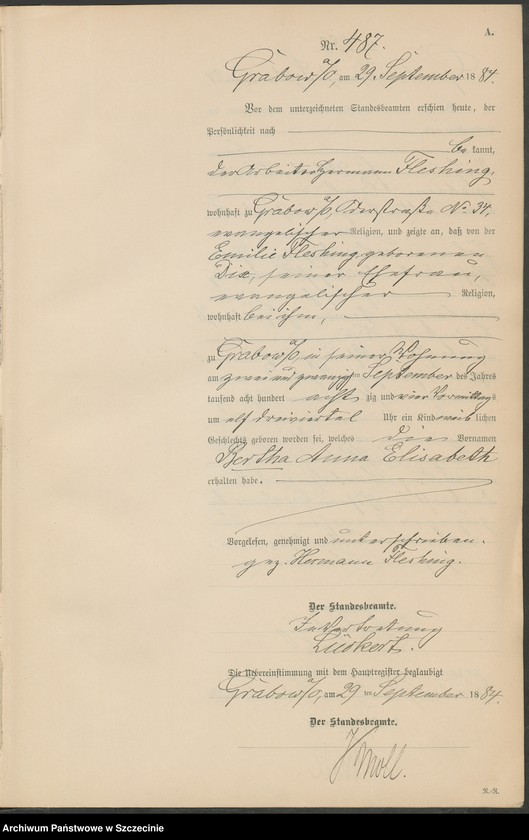 A.
Nr. 487.
Grabow a/O, am 29. September 1884.
Vor dem unterzeichneten Standesbeamten erschien heute, der
Persönlichkeit nach
be kannt,
der Arbeiter Hermann Fleshing,
wohnhaft zu Grabow a/O, Oderstraße No 34,
evangelischer Religion, und zeigte an, daß von der
Emilie Fleshing geborenen
Dix, seiner Ehefrau,
evangelischer Religion,
wohnhaft bei ihm,
zu Grabow a/O in seiner Wohnung
am zwei und zwanzigten September des Jahres
tausend acht hundert acht zig und vier Vormittags
um elf dreiviertel Uhr ein Kind weib lichen
Geschlechts geboren worden sei, welches die Vornamen
Bertha Anna Elisabeth
erhalten habe.
Vorgelesen, genehmigt und unterschrieben.
gez. Hermann Fleshing.
Der Standesbeamte.
In Vertretung
Lückert.
Die Uebereinstimmung mit dem Hauptregister beglaubigt
Grabow a/O, am 29 ten September 1884.
Der Standesbeamte.
Knoll.
R.-R.
Archiwum Państwowe w Szczecinie